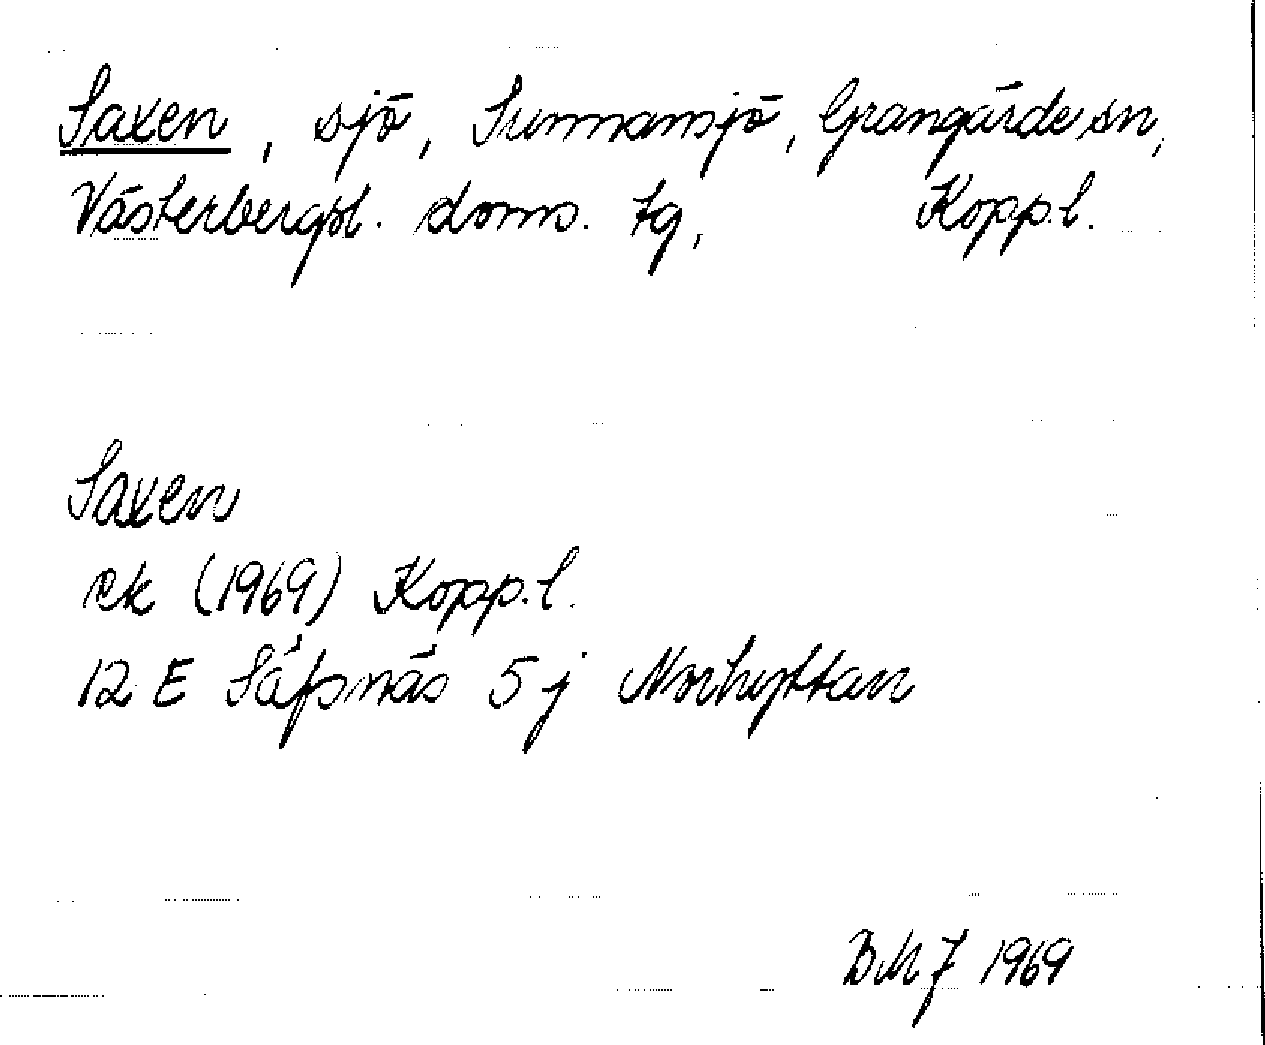 Saxen, sjö, Sunnansjö, Grangärde sn,
Västerbergsl. doms. tg, Kopp.l.
Saxen
ek (1969) Kopp.l.
12 E Säfsnäs 5 j Norhyttan
BMJ 1969